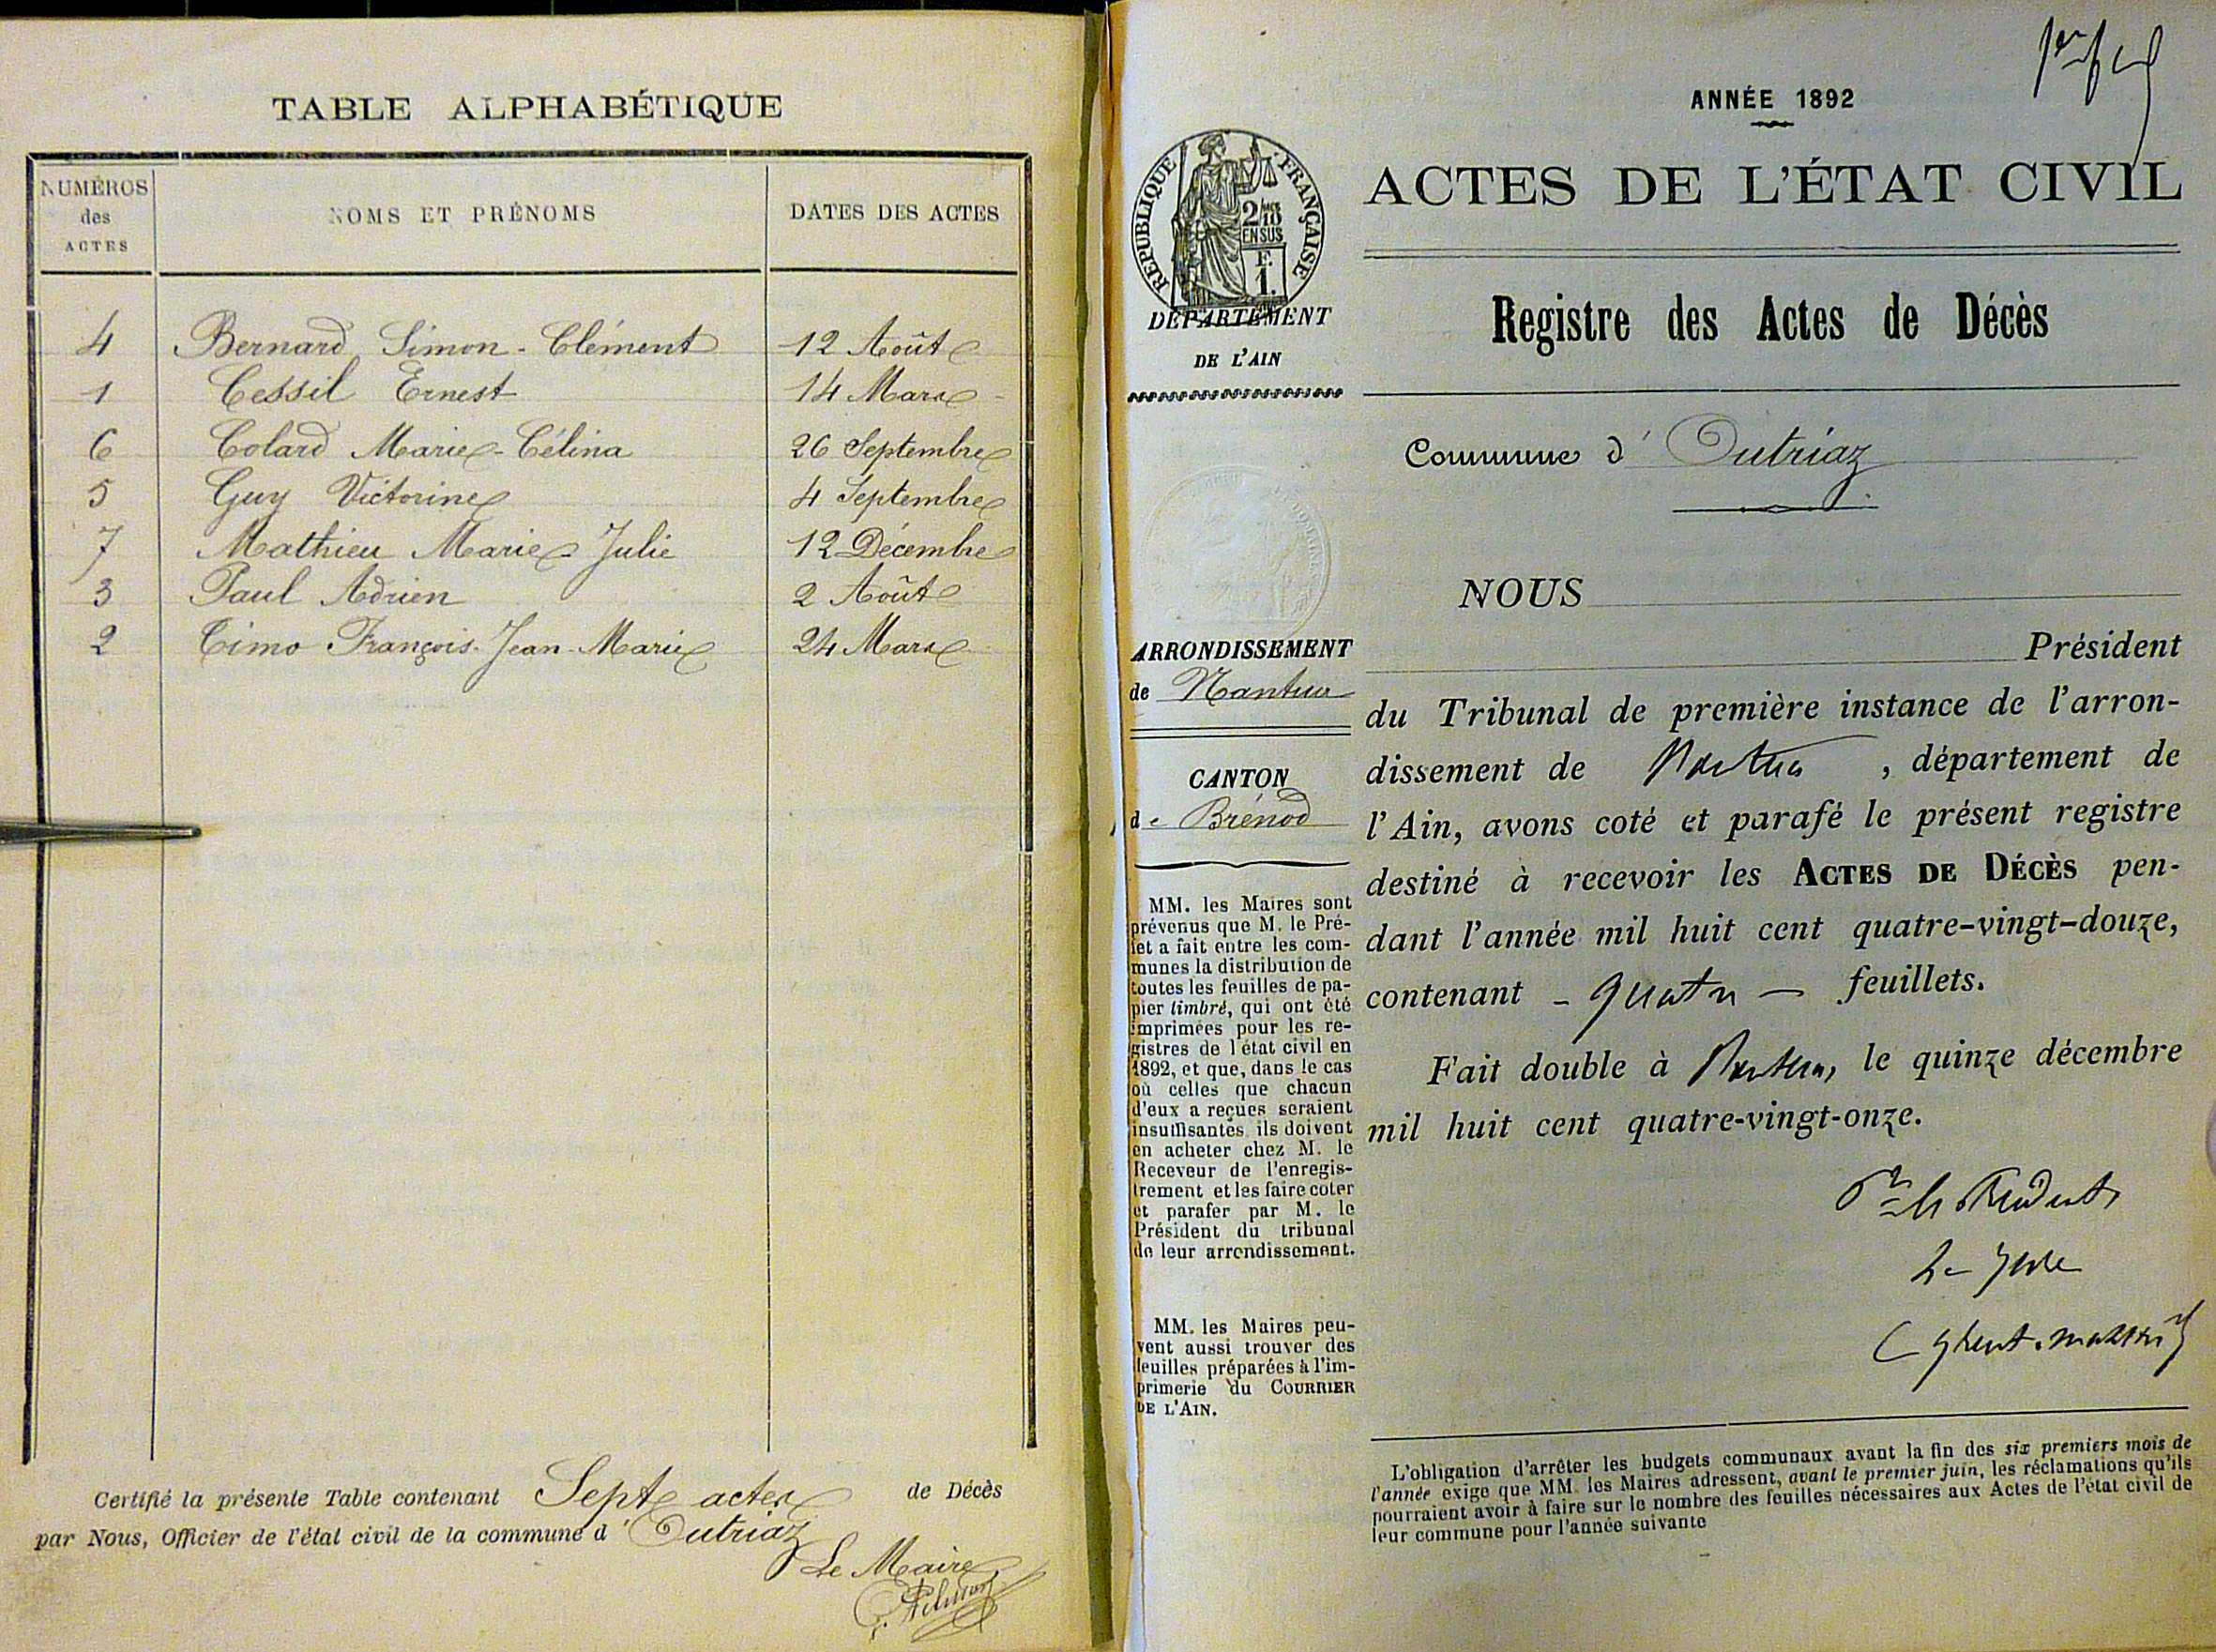 TABLE ALPHABÉTIQUE
NUMÉROS des ACTES
NOMS ET PRÉNOMS
DATES DES ACTES
4 Bernard Simon-Clément 12 Août
1 Cessil Ernest 14 Mars
6 Colard Marie-Célina 26 Septembre
5 Guy Victorine 4 Septembre
7 Mathieu Marie Julie 12 Décembre
3 Paul Adrien 2 Août
2 Timo François-Jean-Marie 24 Mars
Certifié la présente Table contenant Sept actes de Décès
par Nous, Officier de l'état civil de la commune d'Outriaz
Le Maire
ANNÉE 1892
RÉPUBLIQUE FRANÇAISE
2/10 EN SUS
F. 1.
ACTES DE L'ÉTAT CIVIL
DÉPARTEMENT
DE L'AIN
Registre des Actes de Décès
Commune d'Outriaz
ARRONDISSEMENT
de Nantua
CANTON
de Brénod
MM. les Maires sont
prévenus que M. le Pré-
fet a fait entre les com-
munes la distribution de
toutes les feuilles de pa-
pier timbré, qui ont été
imprimées pour les re-
gistres de l'état civil en
1892, et que, dans le cas
où celles que chacun
d'eux a reçues seraient
insuffisantes, ils doivent
en acheter chez M. le
Receveur de l'enregis-
trement et les faire coter
et parafer par M. le
Président du tribunal
de leur arrondissement.
MM. les Maires peu-
vent aussi trouver des
feuilles préparées à l'im-
primerie du COURRIER
DE L'AIN.
NOUS
Président
du Tribunal de première instance de l'arron-
dissement de Nantua, département de
l'Ain, avons coté et parafé le présent registre
destiné à recevoir les ACTES DE DÉCÈS pen-
dant l'année mil huit cent quatre-vingt-douze,
contenant - quatre - feuillets.
Fait double à Nantua, le quinze décembre
mil huit cent quatre-vingt-onze.
Pr le Président
Le Juge
L'obligation d'arrêter les budgets communaux avant la fin des six premiers mois de
l'année exige que MM. les Maires adressent, avant le premier juin, les réclamations qu'ils
pourraient avoir à faire sur le nombre des feuilles nécessaires aux Actes de l'état civil de
leur commune pour l'année suivante